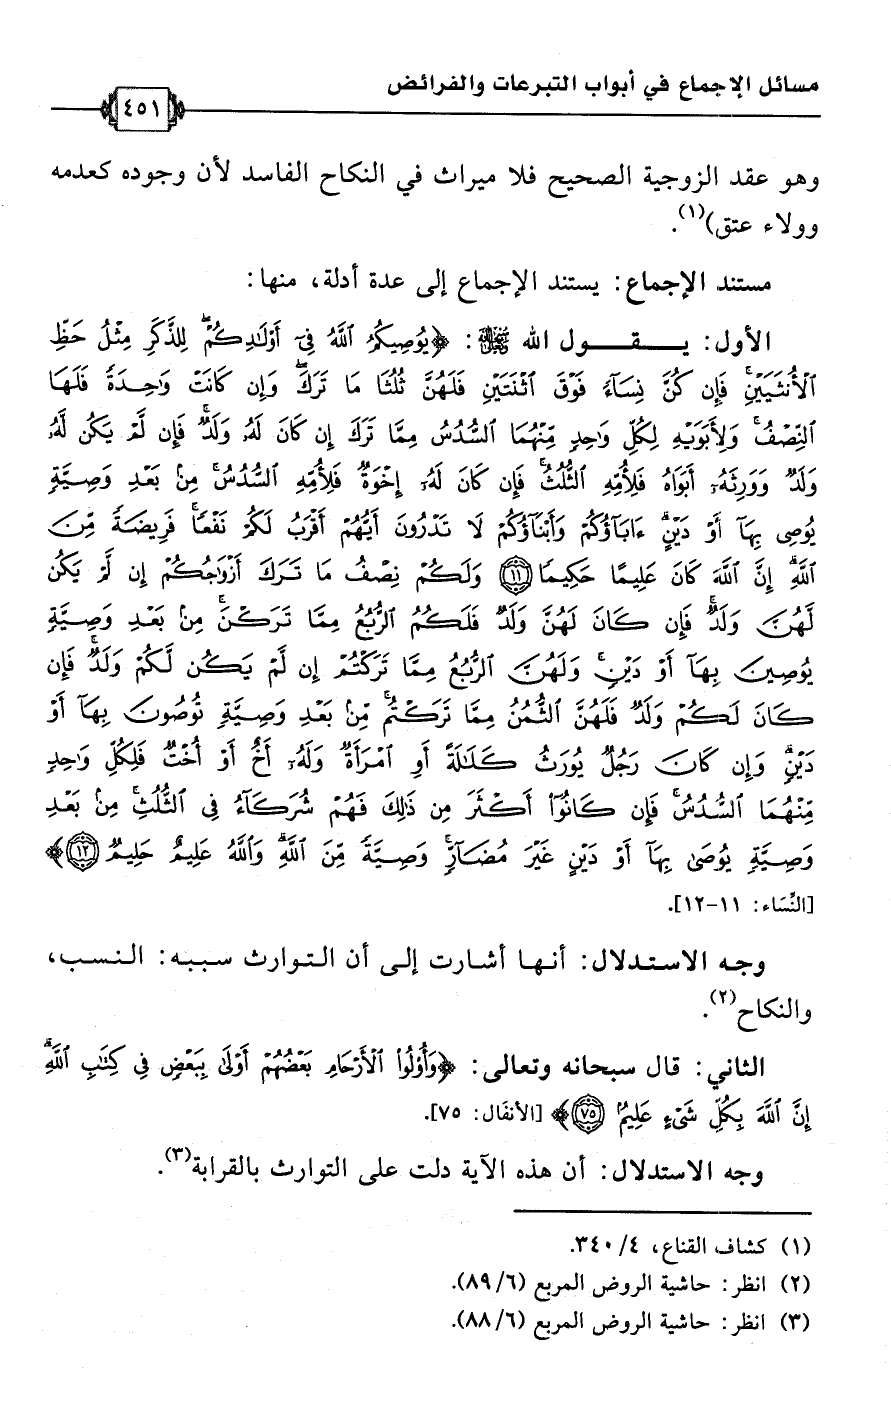 مسائل الإجماع في أبواب التبرعات والفرائض
٤٥١
وهو عقد الزوجية الصحيح فلا ميراث في النكاح الفاسد لأن وجوده كعدمه
وولاء عتق)(١).
مستند الإجماع: يستند الإجماع إلى عدة أدلة، منها:
الأول: يقول الله ﷻ: ﴿يُوصِيكُمُ ٱللَّهُ فِىٓ أَوْلَـٰدِكُمْ ۖ لِلذَّكَرِ مِثْلُ حَظِّ
ٱلْأُنثَيَيْنِ ۚ فَإِن كُنَّ نِسَآءً فَوْقَ ٱثْنَتَيْنِ فَلَهُنَّ ثُلُثَا مَا تَرَكَ ۖ وَإِن كَانَتْ وَٰحِدَةً فَلَهَا
ٱلنِّصْفُ ۚ وَلِأَبَوَيْهِ لِكُلِّ وَٰحِدٍ مِّنْهُمَا ٱلسُّدُسُ مِمَّا تَرَكَ إِن كَانَ لَهُۥ وَلَدٌ ۚ فَإِن لَّمْ يَكُن لَّهُۥ
وَلَدٌ وَوَرِثَهُۥٓ أَبَوَاهُ فَلِأُمِّهِ ٱلثُّلُثُ ۚ فَإِن كَانَ لَهُۥٓ إِخْوَةٌ فَلِأُمِّهِ ٱلسُّدُسُ ۚ مِنۢ بَعْدِ وَصِيَّةٍ
يُوصِى بِهَآ أَوْ دَيْنٍ ۗ ءَابَآؤُكُمْ وَأَبْنَآؤُكُمْ لَا تَدْرُونَ أَيُّهُمْ أَقْرَبُ لَكُمْ نَفْعًا ۚ فَرِيضَةً مِّنَ
ٱللَّهِ ۗ إِنَّ ٱللَّهَ كَانَ عَلِيمًا حَكِيمًا ۝١١ وَلَكُمْ نِصْفُ مَا تَرَكَ أَزْوَٰجُكُمْ إِن لَّمْ يَكُن
لَّهُنَّ وَلَدٌ ۚ فَإِن كَانَ لَهُنَّ وَلَدٌ فَلَكُمُ ٱلرُّبُعُ مِمَّا تَرَكْنَ ۚ مِنۢ بَعْدِ وَصِيَّةٍ
يُوصِينَ بِهَآ أَوْ دَيْنٍ ۚ وَلَهُنَّ ٱلرُّبُعُ مِمَّا تَرَكْتُمْ إِن لَّمْ يَكُن لَّكُمْ وَلَدٌ ۚ فَإِن
كَانَ لَكُمْ وَلَدٌ فَلَهُنَّ ٱلثُّمُنُ مِمَّا تَرَكْتُم ۚ مِّنۢ بَعْدِ وَصِيَّةٍ تُوصُونَ بِهَآ أَوْ
دَيْنٍ ۗ وَإِن كَانَ رَجُلٌ يُورَثُ كَلَـٰلَةً أَوِ ٱمْرَأَةٌ وَلَهُۥٓ أَخٌ أَوْ أُخْتٌ فَلِكُلِّ وَٰحِدٍ
مِّنْهُمَا ٱلسُّدُسُ ۚ فَإِن كَانُوٓا۟ أَكْثَرَ مِن ذَٰلِكَ فَهُمْ شُرَكَآءُ فِى ٱلثُّلُثِ ۚ مِنۢ بَعْدِ
وَصِيَّةٍ يُوصَىٰ بِهَآ أَوْ دَيْنٍ غَيْرَ مُضَآرٍّ ۚ وَصِيَّةً مِّنَ ٱللَّهِ ۗ وَٱللَّهُ عَلِيمٌ حَلِيمٌ ۝١٢﴾
[النِّسَاء: ١١-١٢].
وجه الاستدلال: أنها أشارت إلى أن التوارث سببه: النسب،
والنكاح(٢).
الثاني: قال سبحانه وتعالى: ﴿وَأُو۟لُوا۟ ٱلْأَرْحَامِ بَعْضُهُمْ أَوْلَىٰ بِبَعْضٍ فِى كِتَـٰبِ ٱللَّهِ ۗ
إِنَّ ٱللَّهَ بِكُلِّ شَىْءٍ عَلِيمٌۢ ۝٧٥﴾ [الأنفَال: ٧٥].
وجه الاستدلال: أن هذه الآية دلت على التوارث بالقرابة(٣).
(١) كشاف القناع، ٣٤٠/٤.
(٢) انظر: حاشية الروض المربع (٨٩/٦).
(٣) انظر: حاشية الروض المربع (٨٨/٦).